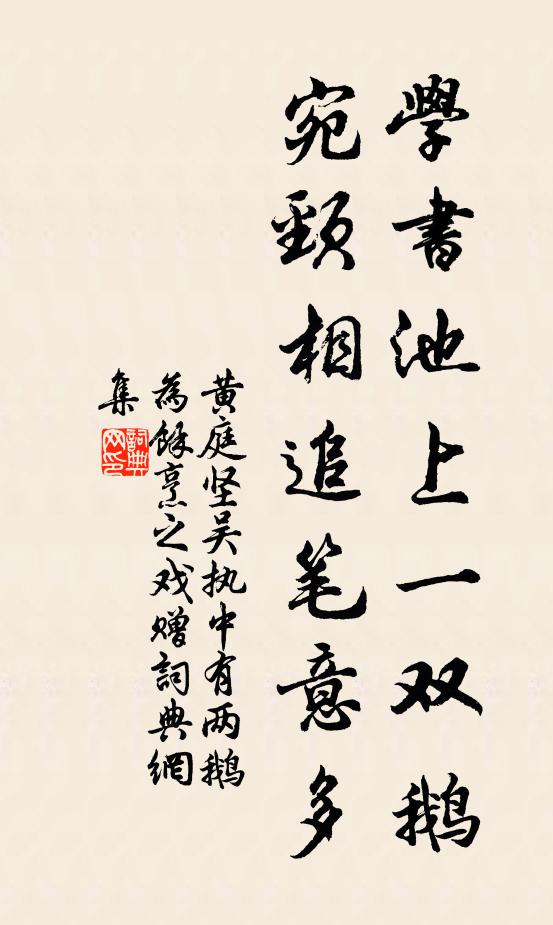 學書池上一双鹅
宛頸相追笔意多
黄庭坚吴执中有两鹅
為馀烹之戏赠詞典網
集
詞典
网印